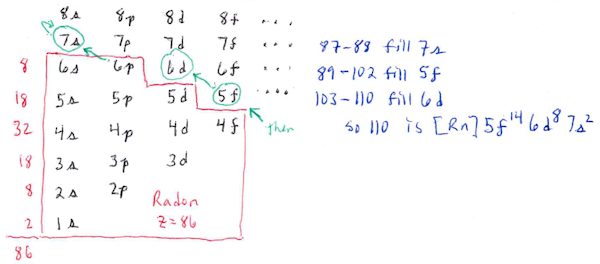 8s 8p 8d 8f ....
7s 7p 7d 7f ...
8 6s 6p 6d 6f ...
18 5s 5p 5d 5f ....
32 4s 4p 4d 4f then
18 3s 3p 3d
8 2s 2p Radon
2 1s Z=86
86
87-88 fill 7s
89-102 fill 5f
103-110 fill 6d
so 110 is [Rn]5f¹⁴6d⁸7s²